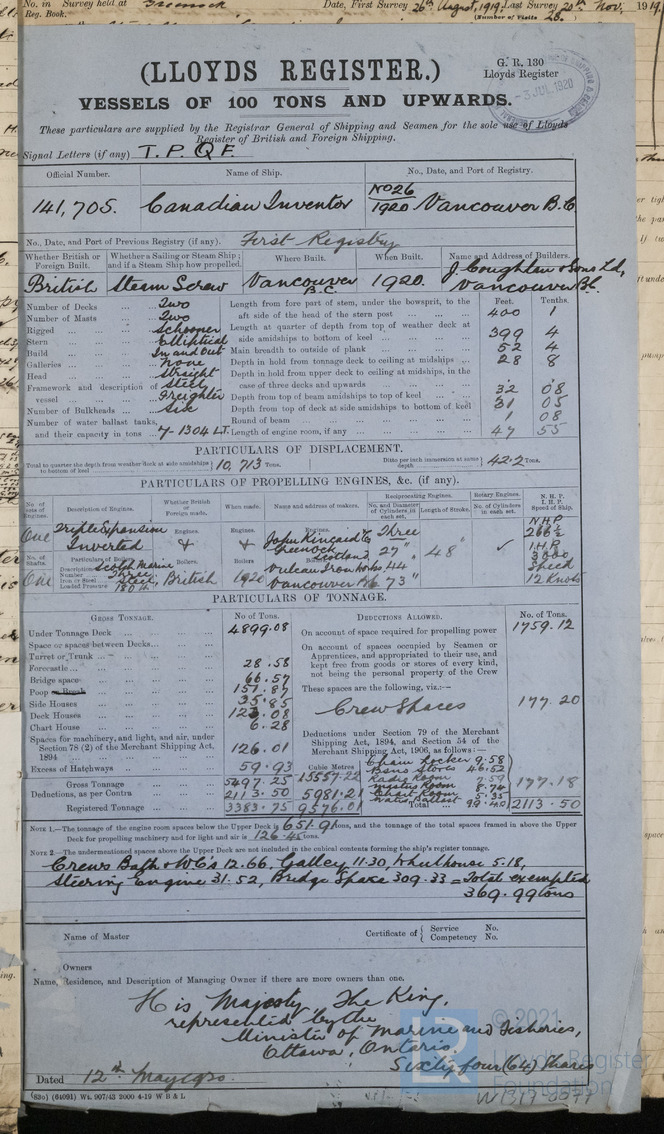 No. in Survey held at Greenock Date, First Survey 26th August, 1919 Last Survey 20th Nov, 1919
Reg. Book. (Number of Visits 28.)
(LLOYDS REGISTER.)
G. R. 130
Lloyds Register
3 JUL 1920
VESSELS OF 100 TONS AND UPWARDS.
These particulars are supplied by the Registrar General of Shipping and Seamen for the sole use of Lloyds
Register of British and Foreign Shipping.
Signal Letters (if any) T.P.Q.F.
Official Number. Name of Ship. No., Date, and Port of Registry.
141,705. Canadian Inventor No 26/1920 Vancouver B.C
No., Date, and Port of Previous Registry (if any). First Registry
Whether British or Foreign Built. Whether a Sailing or Steam Ship; and if a Steam Ship how propelled. Where Built. When Built. Name and Address of Builders.
British Steam Screw Vancouver B.C. 1920. J. Coughlan & Sons Ld, Vancouver B.C.
Number of Decks ... Two
Number of Masts ... Two
Rigged ... Schooner
Stern ... Elliptical
Build ... In and Out
Galleries ... None
Head ... Straight
Framework and description of vessel ... Steel Freighter
Number of Bulkheads ... Six
Number of water ballast tanks, and their capacity in tons ... 7 - 1304 L.T.
Feet. Tenths.
Length from fore part of stem, under the bowsprit, to the aft side of the head of the stern post ... 400 1
Length at quarter of depth from top of weather deck at side amidships to bottom of keel ... 399 4
Main breadth to outside of plank ... 52 4
Depth in hold from tonnage deck to ceiling at midships ... 28 8
Depth in hold from upper deck to ceiling at midships, in the case of three decks and upwards ...
Depth from top of beam amidships to top of keel ... 32 08
Depth from top of deck at side amidships to bottom of keel 31 05
Round of beam ... 1 08
Length of engine room, if any ... 47 55
PARTICULARS OF DISPLACEMENT.
Total to quarter the depth from weather deck at side amidships to bottom of keel 10,713 Tons. Ditto per inch immersion at same depth 42.2 Tons.
PARTICULARS OF PROPELLING ENGINES, &c. (if any).
No. of sets of Engines. Description of Engines. Whether British or Foreign made. When made. Name and address of makers. Reciprocating Engines. Rotary Engines. N. H. P. I. H. P. Speed of Ship.
No. and Diameter of Cylinders in each set. Length of Stroke. No. of Cylinders in each set.
One Triple Expansion Inverted Engines. Engines. Engines. John Kincaid Co Greenock Scotland Three 27" 44" 73" 48" N.H.P.
I.H.P.
Speed 12 Knots
No. of Shafts. Particulars of Boilers. Boilers. Boilers
One Description Scotch Marine British 1920 Vulcan Iron Works Vancouver B.C.
Number Three
Iron or Steel Steel
Loaded Pressure 180 lb
PARTICULARS OF TONNAGE.
GROSS TONNAGE. No of Tons. DEDUCTIONS ALLOWED. No. of Tons.
Under Tonnage Deck ... 4899.08
Space or spaces between Decks...
Turret or Trunk ...
Forecastle ... 28.58
Bridge space 66.57
Poop or Break 151.87
Side Houses 35.85
Deck Houses 123.08
Chart House 6.28
Spaces for machinery, and light, and air, under Section 78 (2) of the Merchant Shipping Act, 1894 ... 126.01
Excess of Hatchways ... 59.93
Cubic Metres
Gross Tonnage 5497.25 15557.22
Deductions, as per Contra 2113.50 5981.21
Registered Tonnage 3383.75 9576.01
On account of space required for propelling power 1759.12
On account of spaces occupied by Seamen or Apprentices, and appropriated to their use, and kept free from goods or stores of every kind, not being the personal property of the Crew
These spaces are the following, viz.:—
Crew Spaces 177.20
Deductions under Section 79 of the Merchant Shipping Act, 1894, and Section 54 of the Merchant Shipping Act, 1906, as follows:—
Chain Locker 9.58
Bsns Stores 46.52
Radio Room 7.59
Masters Room 8.74
Chart Room 5.35
Water Ballast 99.40 177.18
Total 2113.50
NOTE 1.—The tonnage of the engine room spaces below the Upper Deck is 651.91 tons, and the tonnage of the total spaces framed in above the Upper Deck for propelling machinery and for light and air is 126.45 tons.
NOTE 2.—The undermentioned spaces above the Upper Deck are not included in the cubical contents forming the ship's register tonnage.
Crews Bath & WC's 12.66, Galley 11.30, Wheelhouse 5.18,
Steering Engine 31.52, Bridge Space 309.33 = Total exempted
369.99 tons
Name of Master Certificate of { Service No. Competency No.
Owners
Name, Residence, and Description of Managing Owner if there are more owners than one.
His Majesty, The King,
represented by the
Minister of Marine and Fisheries,
Ottawa, Ontario
Sixty four (64) Shares
Dated 12th May 1920.
(830) (64091) Wt. 907/43 2000 4-19 W B & L
© 2021
LR
Lloyd's Register
Foundation